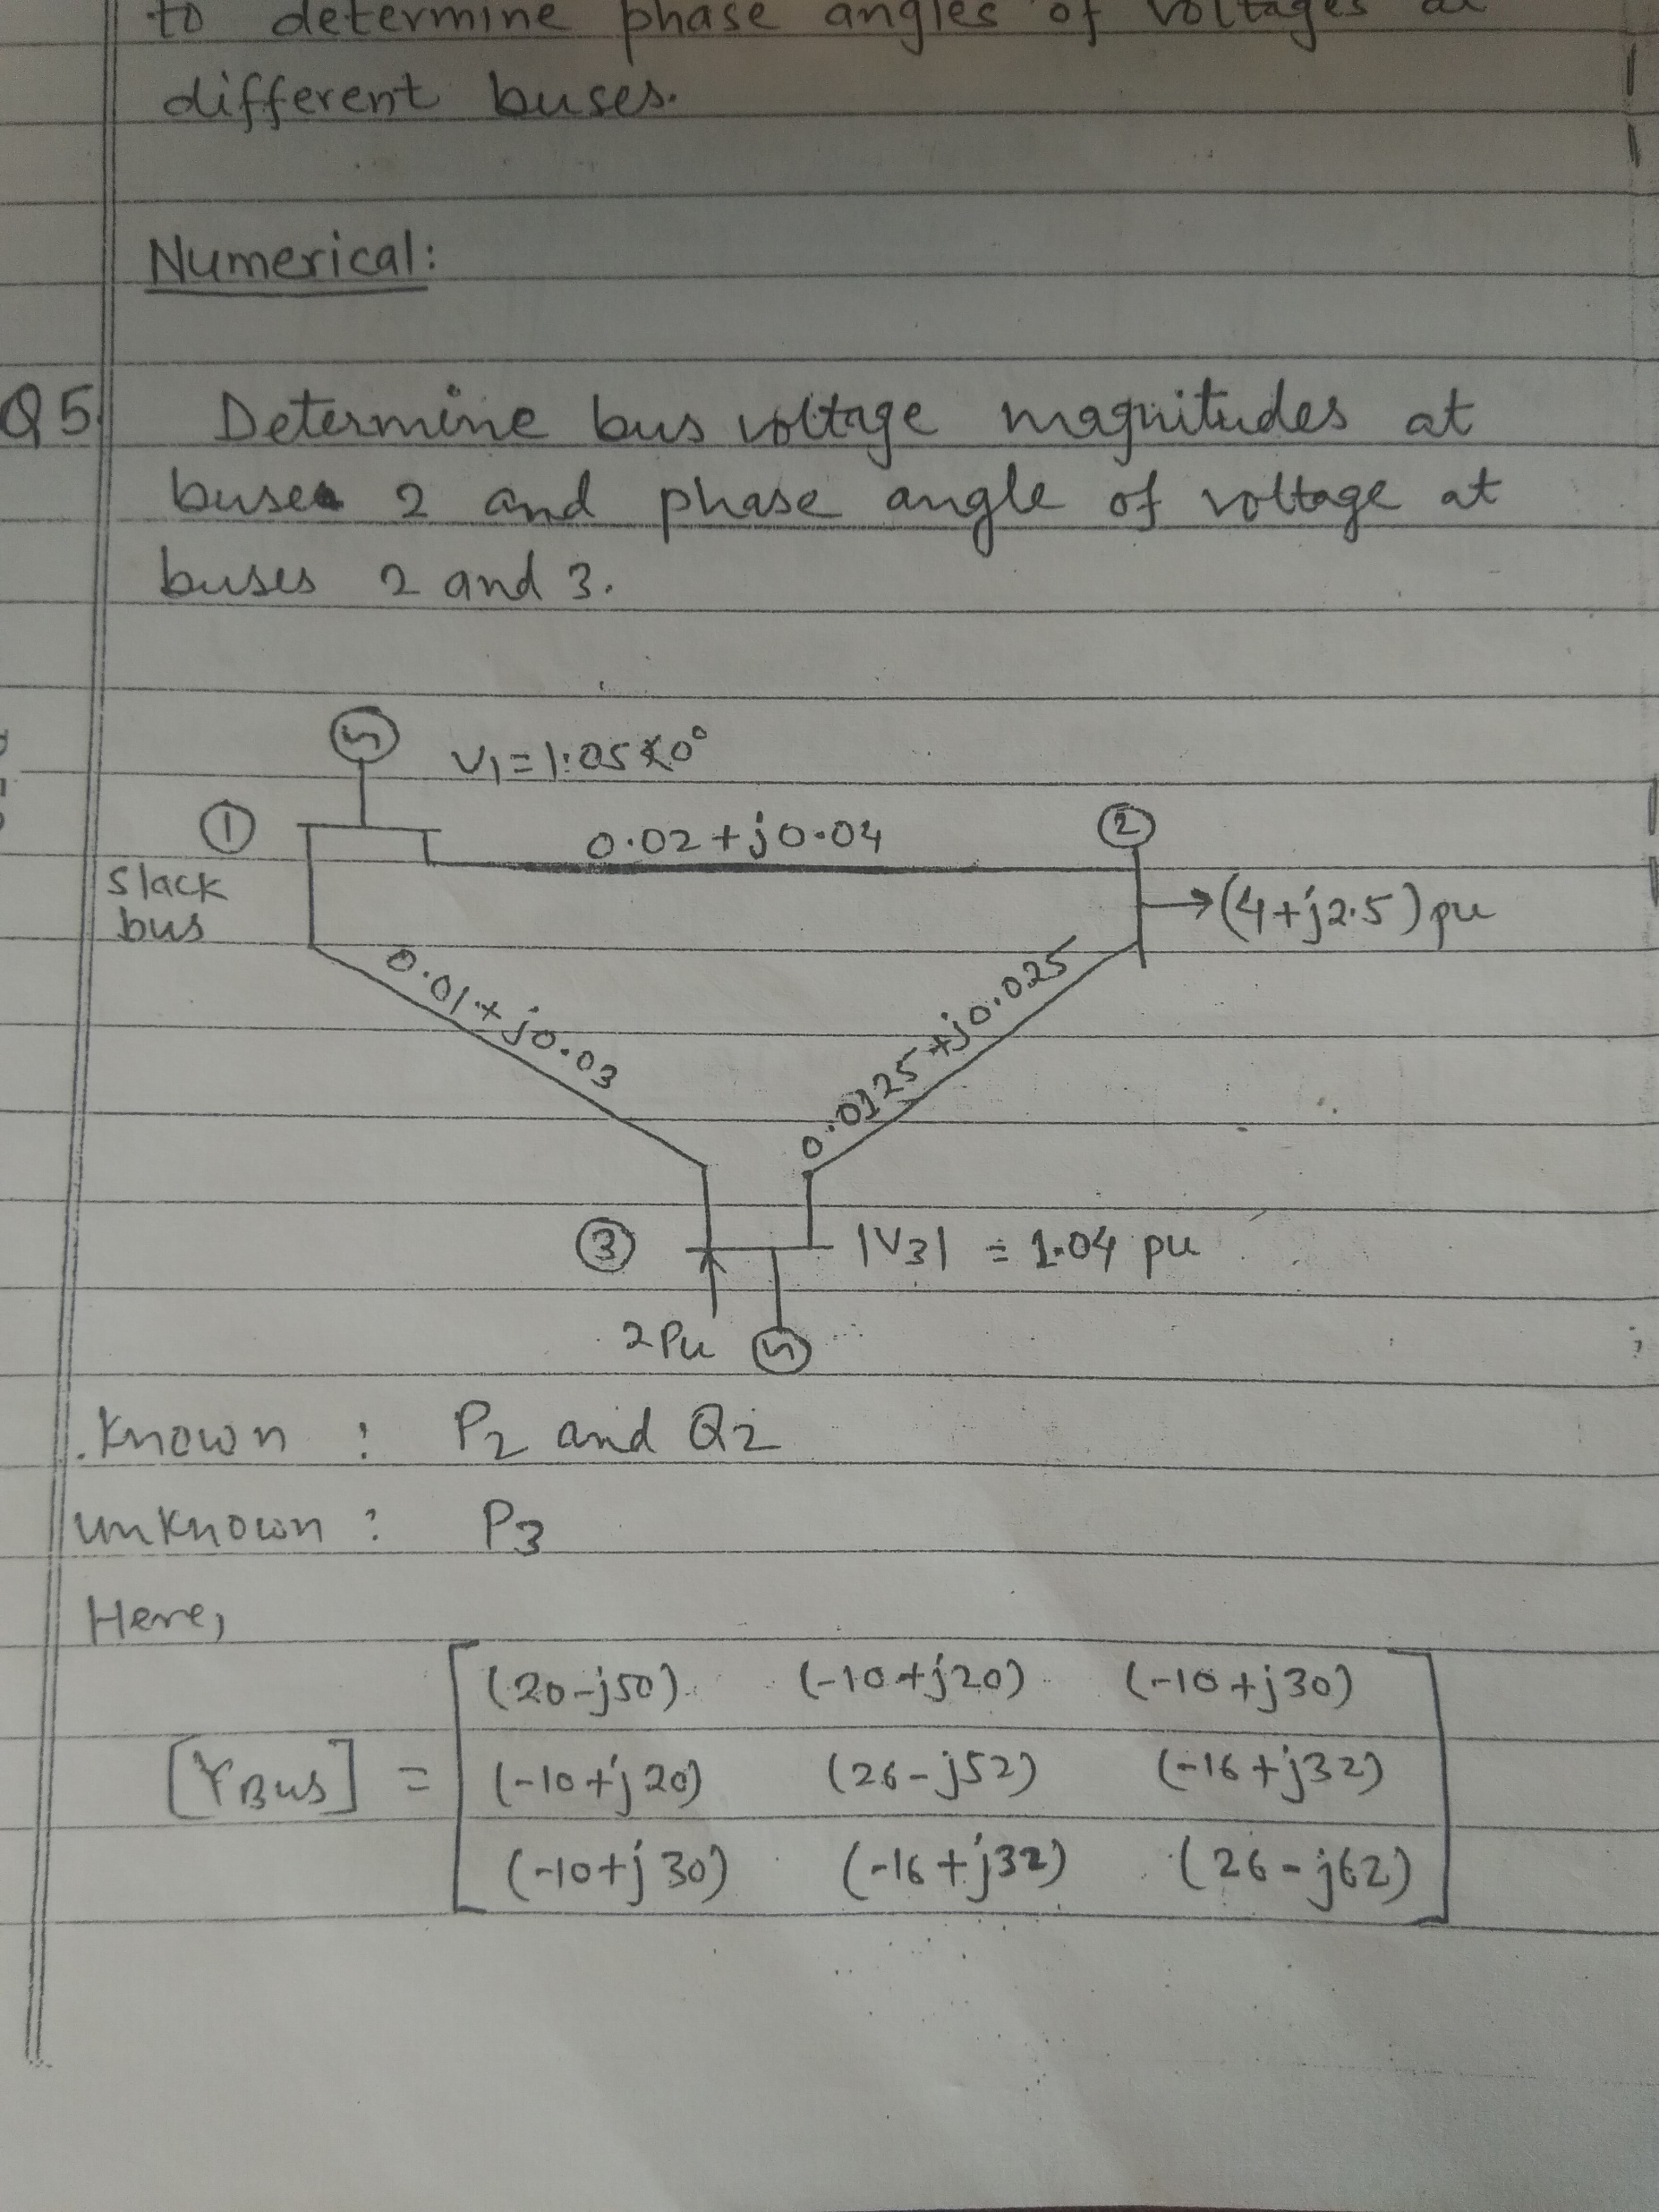 to determine phase angles of voltages at
different buses.
Numerical:
Q5. Determine bus voltage magnitudes at
buses 2 and phase angle of voltage at
buses 2 and 3.
V1 = 1.05∠0°
①
0.02 + j0.04
②
Slack
bus
→ (4+j2.5) pu
0.01 + j0.03
0.0125 + j0.025
③
|V3| = 1.04 pu
2 Pu
Known : P2 and Q2
unknown : P3
Here,
[YBus] = [(20-j50) (-10+j20) (-10+j30)
(-10+j20) (26-j52) (-16+j32)
(-10+j30) (-16+j32) (26-j62)]